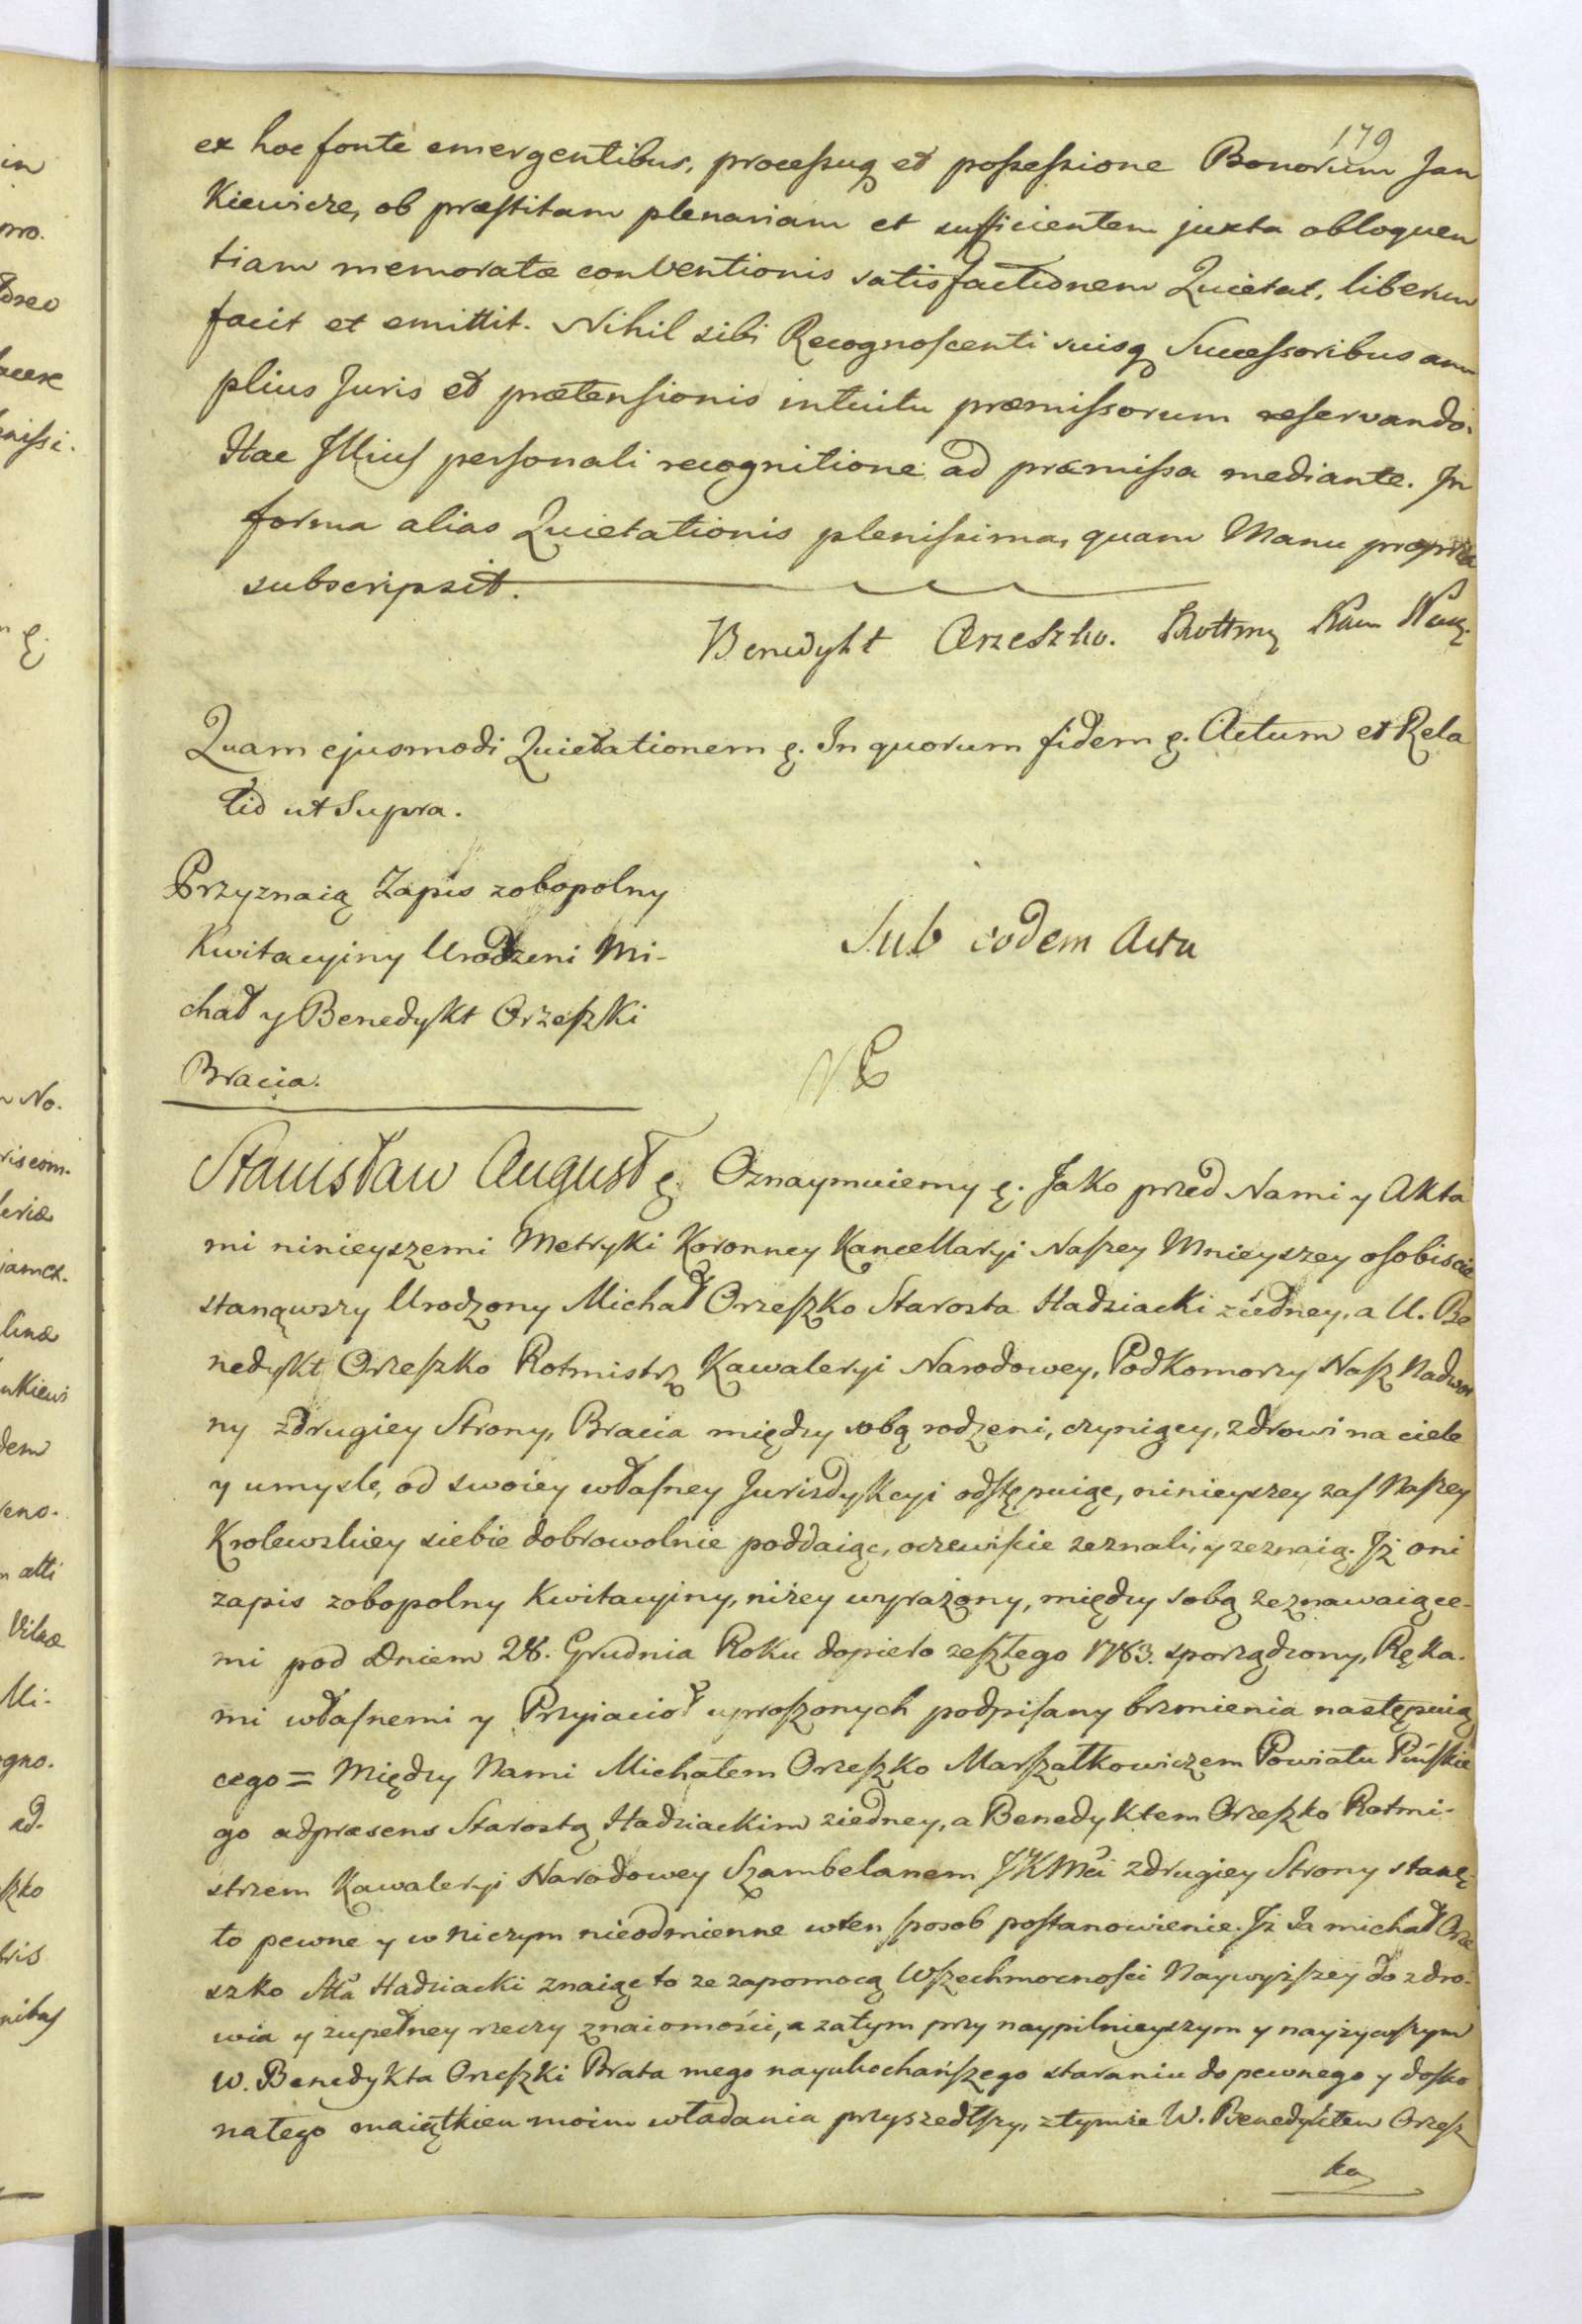 179
ex hoc fonte emergentibus, processuq et possessione Bonorum Jan
Kiewicze, ob præstitam plenariam et sufficientem juxta obloquen
tiam memoratæ conventionis satisfactionem Quietat, liberum
facit et emittit. Nihil sibi Recognoscenti suisq Successoribus am
plius Juris et prætensionis intuitu præmissorum reservando.
Hac Illius personali recognitione ad præmissa mediante. In
forma alias Quietationis plenissima, quam Manu propria
subscripsit.
Benedykt Orzeszko. Rottmz Kaw Narz.
Quam ejusmodi Quietationem ę. In quorum fidem ę. Actum et Rela
tio ut Supra.
Przyznaią Zapis zobopolny
Kwitacyiny Urodzeni Mi-
chał y Benedykt Orzeszki
Bracia.
Sub eodem Actu
Stanisław August ę. Oznaymuiemy ę. Jako przed Nami y Akta
mi ninieyszemi Metryki Koronney Kancellaryi Naszey Mnieyszey osobiscie
stanąwszy Urodzony Michał Orzeszko Starosta Hadziacki ziedney, a U. Be
nedykt Orzeszko Rotmistrz Kawaleryi Narodowey, Podkomorzy Nasz Nadwor
ny zdrugiey Strony, Bracia między sobą rodzeni, czyniący, zdrowi na ciele
y umysle, od swoiey własney Jurisdykcyi odstępuiąc, ninieyszey zas Naszey
Krolewskiey siebie dobrowolnie poddaiąc, oczewiscie zeznali, y zeznaią. Iż oni
zapis zobopolny Kwitacyiny, niżey wyrażony, między sobą zeznawaiące-
mi pod Dniem 28. Grudnia Roku dopiero zeszłego 1783. sporządzony, Ręka-
mi własnemi y Przyiacioł uproszonych podpisany brzmienia następuią
cego = Między Nami Michałem Orzeszko Marszałkowiczem Powiatu Pińskie
go adpræsens Starostą Hadziackim ziedney, a Benedyktem Orzeszko Rotmi-
strzem Kawaleryi Narodowey Szambelanem JKMci zdrugiey Strony stanę-
to pewne y w niczym nieodmienne wten sposob postanowienie. Iż Ja michał Orze
szko Stta Hadziacki znaiąc to ze zapomocą Wszechmocności Naywyższey do zdro-
wia y zupełney rzeczy znaiomości, a zatym przy naypilnieyszym y nayżywszym
W. Benedykta Orzeszki Brata mego nayukochańszego staraniu do pewnego y dosko
nałego maiątkiem moim władania przyszedłszy, ztymże W. Benedyktem Orzesz
ką